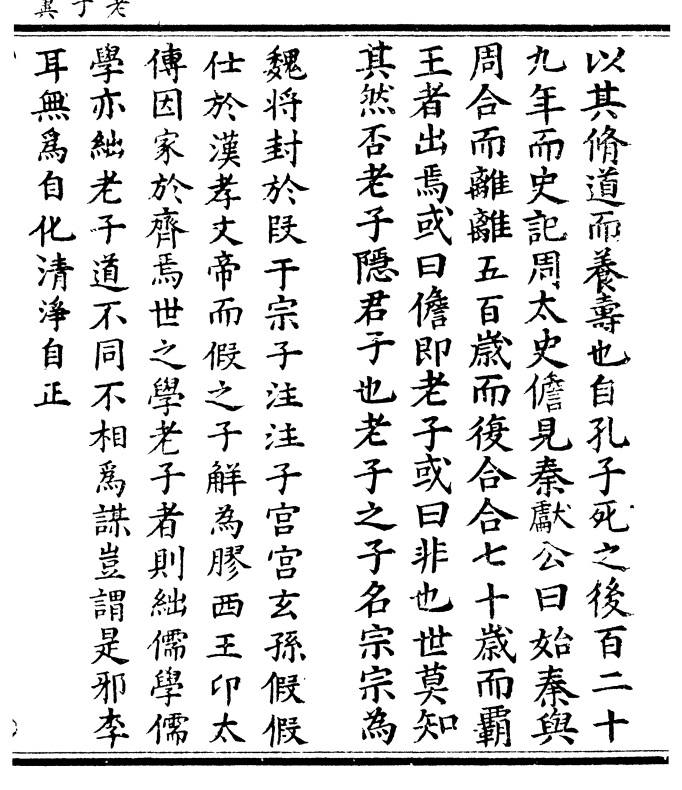 以其脩道而養壽也自孔子死之後百二十
九年而史記周太史儋見秦獻公曰始秦與
周合而離離五百歲而復合合七十歲而霸
王者出焉或曰儋即老子或曰非也世莫知
其然否老子隱君子也老子之子名宗宗為
魏将封於叚干宗子注注子宫宫玄孫假假
仕於漢孝文帝而假之子解為膠西王卬太
傅因家於齊焉世之學老子者則絀儒學儒
學亦絀老子道不同不相爲謀豈謂是邪李
耳無爲自化清淨自正